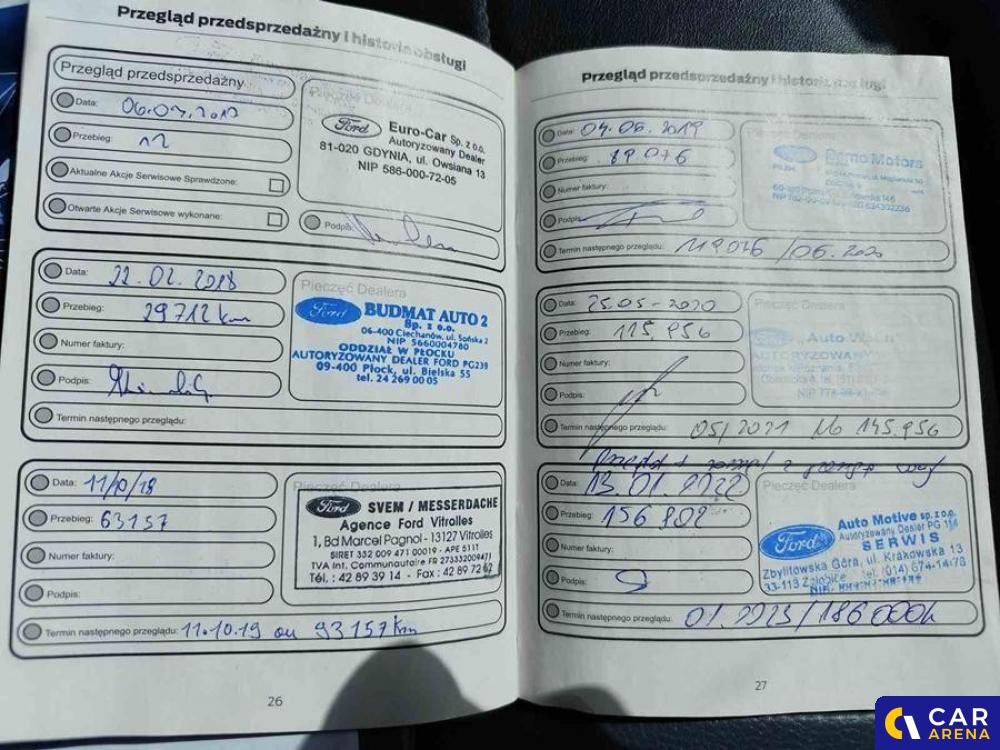 Przegląd przedsprzedażny i historia obsługi
Przegląd przedsprzedażny
Data:
Przebieg:
Aktualne Akcje Serwisowe Sprawdzone:
Otwarte Akcje Serwisowe wykonane:
Pieczęć Dealera
Ford
Euro-Car Sp. z o.o.
Autoryzowany Dealer
81-020 GDYNIA, ul. Owsiana 13
NIP 586-000-72-05
Podpis:
Data: 22.02.2018
Przebieg: 29712 km
Numer faktury:
Podpis:
Termin następnego przeglądu:
Pieczęć Dealera
Ford
BUDMAT AUTO 2
Sp. z o.o.
06-400 Ciechanów, ul. Sońska 2
NIP 5660004780
ODDZIAŁ W PŁOCKU
AUTORYZOWANY DEALER FORD PG239
09-400 Płock, ul. Bielska 55
tel. 24 269 00 05
Data: 11/10/18
Przebieg: 63157
Numer faktury:
Podpis:
Termin następnego przeglądu: 11.10.19 ou 93157 Km
Pieczęć Dealera
Ford
SVEM / MESSERDACHE
Agence Ford Vitrolles
1, Bd Marcel Pagnol - 13127 Vitrolles
SIRET 332 009 471 00019 - APE 511T
TVA Int. Communautaire FR 273332009471
Tél. : 42 89 39 14 - Fax : 42 89 72 62
26
Przegląd przedsprzedażny i historia obsługi
Data: 04.06.2019
Przebieg: 89076
Numer faktury:
Podpis:
Termin następnego przeglądu: 119076 / 06.2020
Ford
Primo Motors
Data: 25.05-2020
Przebieg: 115.956
Numer faktury:
Podpis:
Termin następnego przeglądu: 05/2021 lub 145.956
Pieczęć Dealera
Data: 13.01.2022
Przebieg: 156802
Numer faktury:
Podpis:
Termin następnego przeglądu: 01.2023/186000k
Pieczęć Dealera
Ford
Auto Motive sp. z o.o.
Autoryzowany Dealer PG 114
SERWIS
Zbylitowska Góra, ul. Krakowska 13
33-113 Zgłobice tel. (014) 674-14-78
27
CAR
ARENA